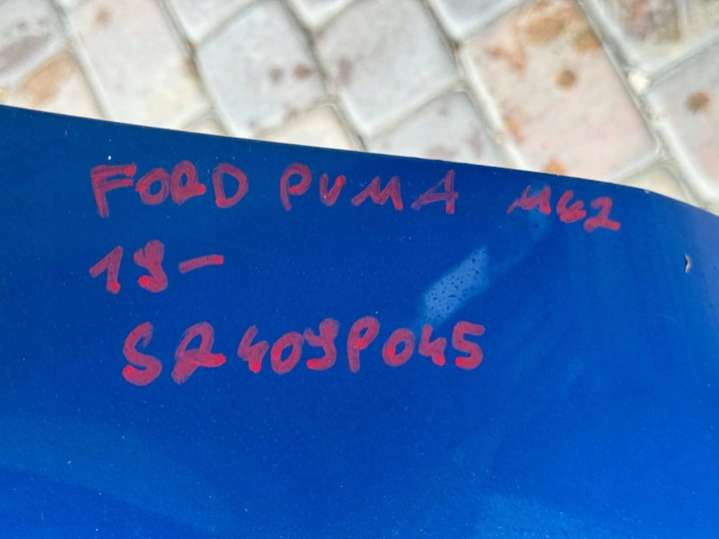 FORD PUMA MG2
19-
SR409P045